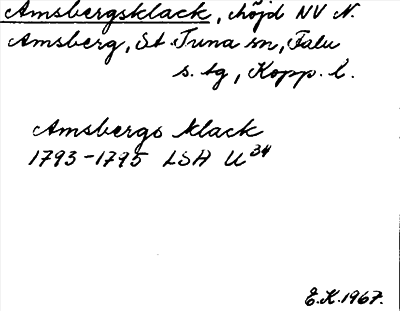 Amsbergsklack, höjd NV N.
Amsberg, St. Tuna sn, Falu
s. tg, Kopp. l.
Amsbergs klack
1793-1795 LSA U34
E.K. 1967.